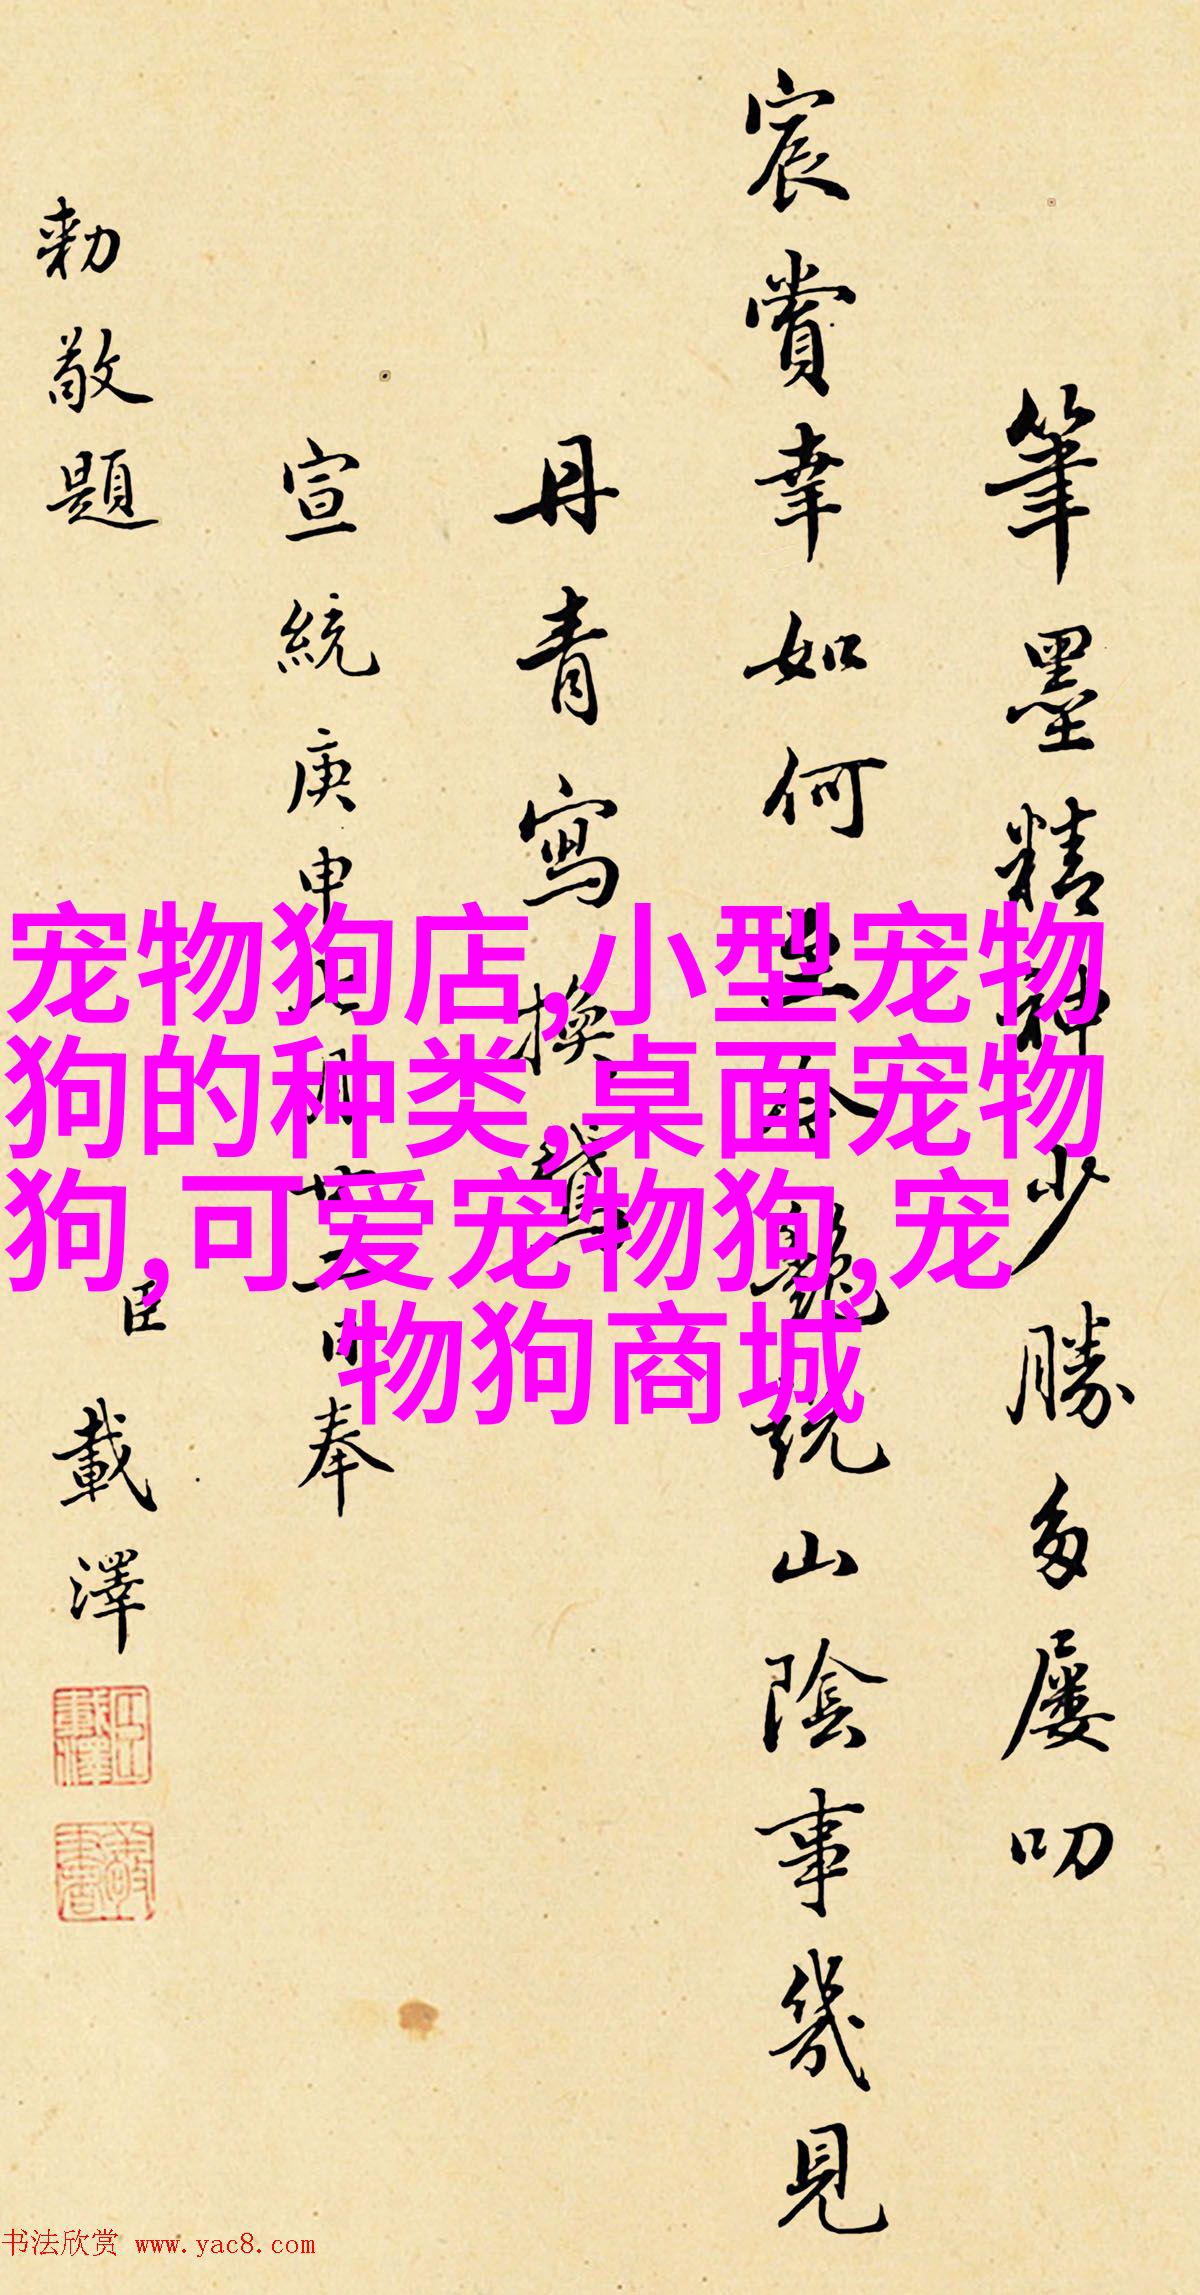 筆墨精神少勝多屢叨
宸賞幸如何 艷說山陰事幾見
丹青寫換鵞
宣統庚申 月 日奉
勅敬題
臣載澤
宠物狗店,小型宠物
狗的种类,桌面宠物
狗,可爱宠物狗,宠
物狗商城
书法欣赏 www.yac8.com